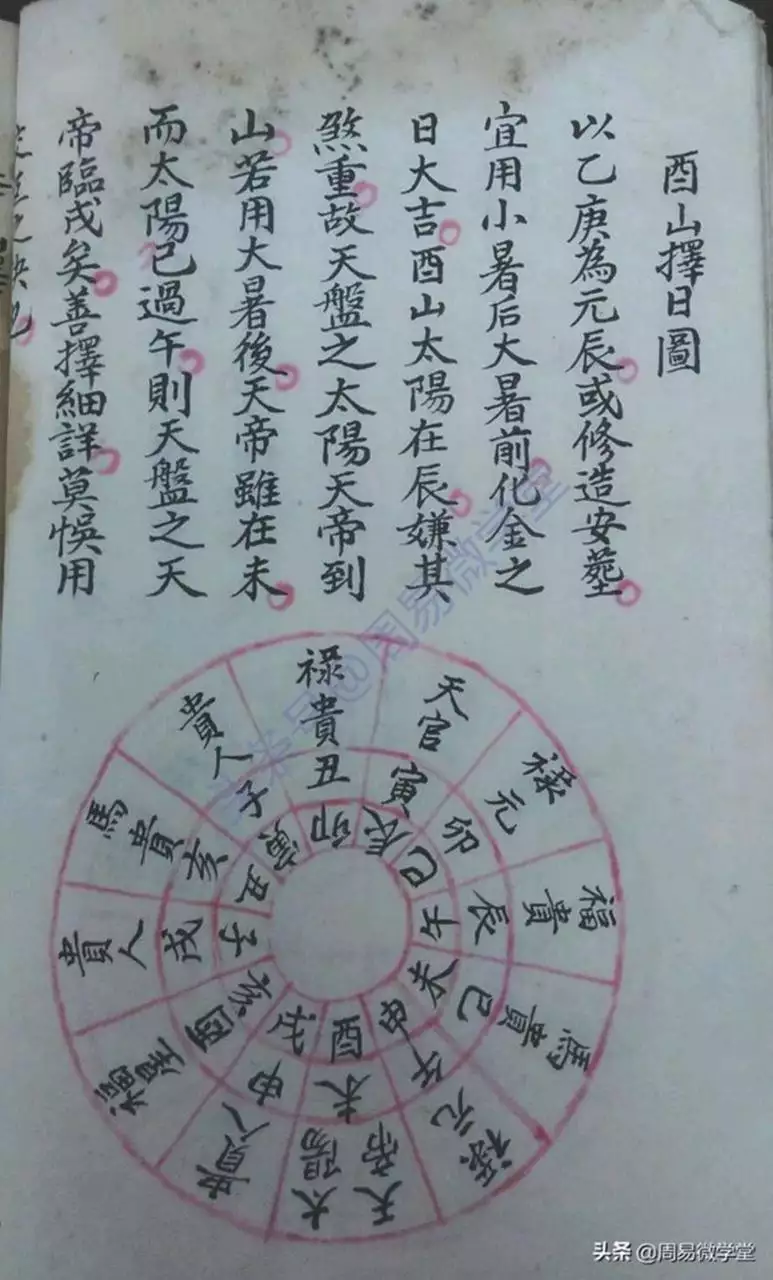 酉山擇日圖
以乙庚為元辰或修造安塟
宜用小暑后大暑前化金之
日大吉酉山太陽在辰嫌其
煞重故天盤之太陽天帝到
山若用大暑後天帝雖在未
而太陽已過午則天盤之天
帝臨戌矣善擇細詳莫悞用
祿貴
丑
卯
天官
寅
辰
祿元
卯
巳
福貴
辰
午
馬貴
巳
未
祿元
午
申
天帝
太陽
未
酉
貴人
申
戌
酉
亥
貴人
戌
子
馬貴
亥
丑
貴人
子
寅
头条 @周易微学堂